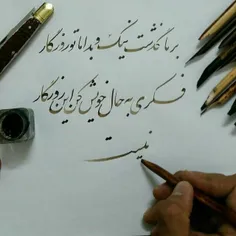 بر ما گذشت نیک و بد اما تو روزگار
فکری به حال خویش کن این روزگار
نیست